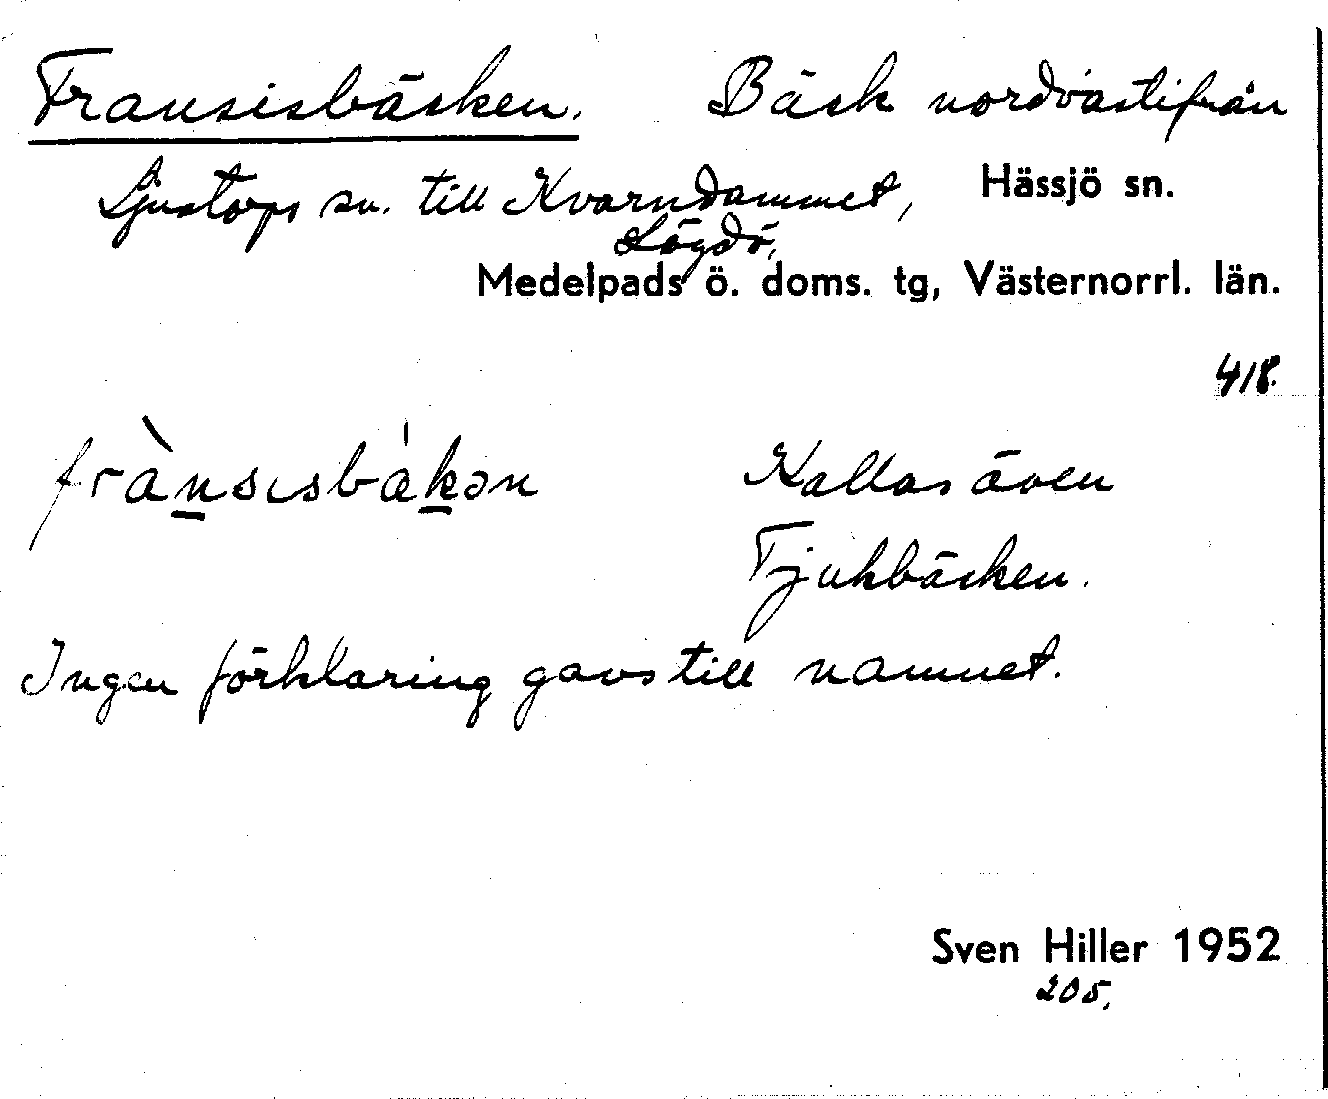 Fransisbäcken. Bäck nordvästifrån
Ljustorps sn. till Kvarndammet, Hässjö sn.
Lögdö,
Medelpads ö. doms. tg, Västernorrl. län.
418.
frànsısbákən Kallas även
Tjukbäcken.
Ingen förklaring gavs till namnet.
Sven Hiller 1952
205,